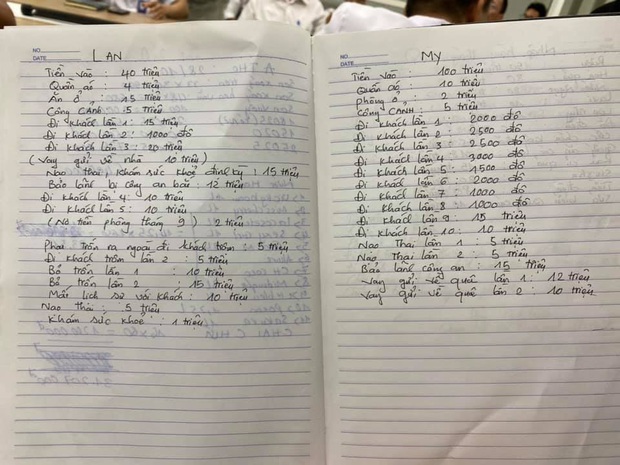 NO.
DATE
LAN
Tiền vào : 40 triệu
Quần áo : 4 triệu
Ăn ở : 15 triệu
Công CẢNH : 5 triệu
Đi Khách lần 1 : 15 triệu
Đi khách lần 2 : 1000 đô
Đi khách lần 3 : 20 triệu
(Vay gửi về nhà 10 triệu)
Nạo thai, khám sức khoẻ định kỳ : 15 triệu
Bảo lãnh bị công an bắt : 12 triệu
Đi khách lần 4 : 10 triệu
Đi khách lần 5 : 10 triệu
(Nợ tiền phòng tháng 9) : 2 triệu
Phạt trốn ra ngoài đi khách trộm : 5 triệu
Đi khách trộm lần 2 : 5 triệu
Bỏ trốn lần 1 : 10 triệu
Bỏ trốn lần 2 : 15 triệu
Mất lịch sự với khách : 10 triệu
Nạo thai : 5 triệu
Khám sức khoẻ : 1 triệu
NO.
DATE
MY
Tiền vào : 100 triệu
Quần áo : 10 triệu
phòng ở : 2 triệu
Công CẢNH : 5 triệu
Đi Khách lần 1 : 2000 đô
Đi Khách lần 2 : 2500 đô
Đi Khách lần 3 : 2500 đô
Đi Khách lần 4 : 3000 đô
Đi Khách lần 5 : 1500 đô
Đi Khách lần 6 : 2000 đô
Đi Khách lần 7 : 1000 đô
Đi Khách lần 8 : 1000 đô
Đi Khách lần 9 : 15 triệu
Đi Khách lần 10 : 10 triệu
Nạo Thai lần 1 : 5 triệu
Nạo Thai lần 2 : 5 triệu
Bảo lãnh công an : 15 triệu
Vay gửi về quê lần 1 : 12 triệu
Vay gửi về quê lần 2 : 10 triệu